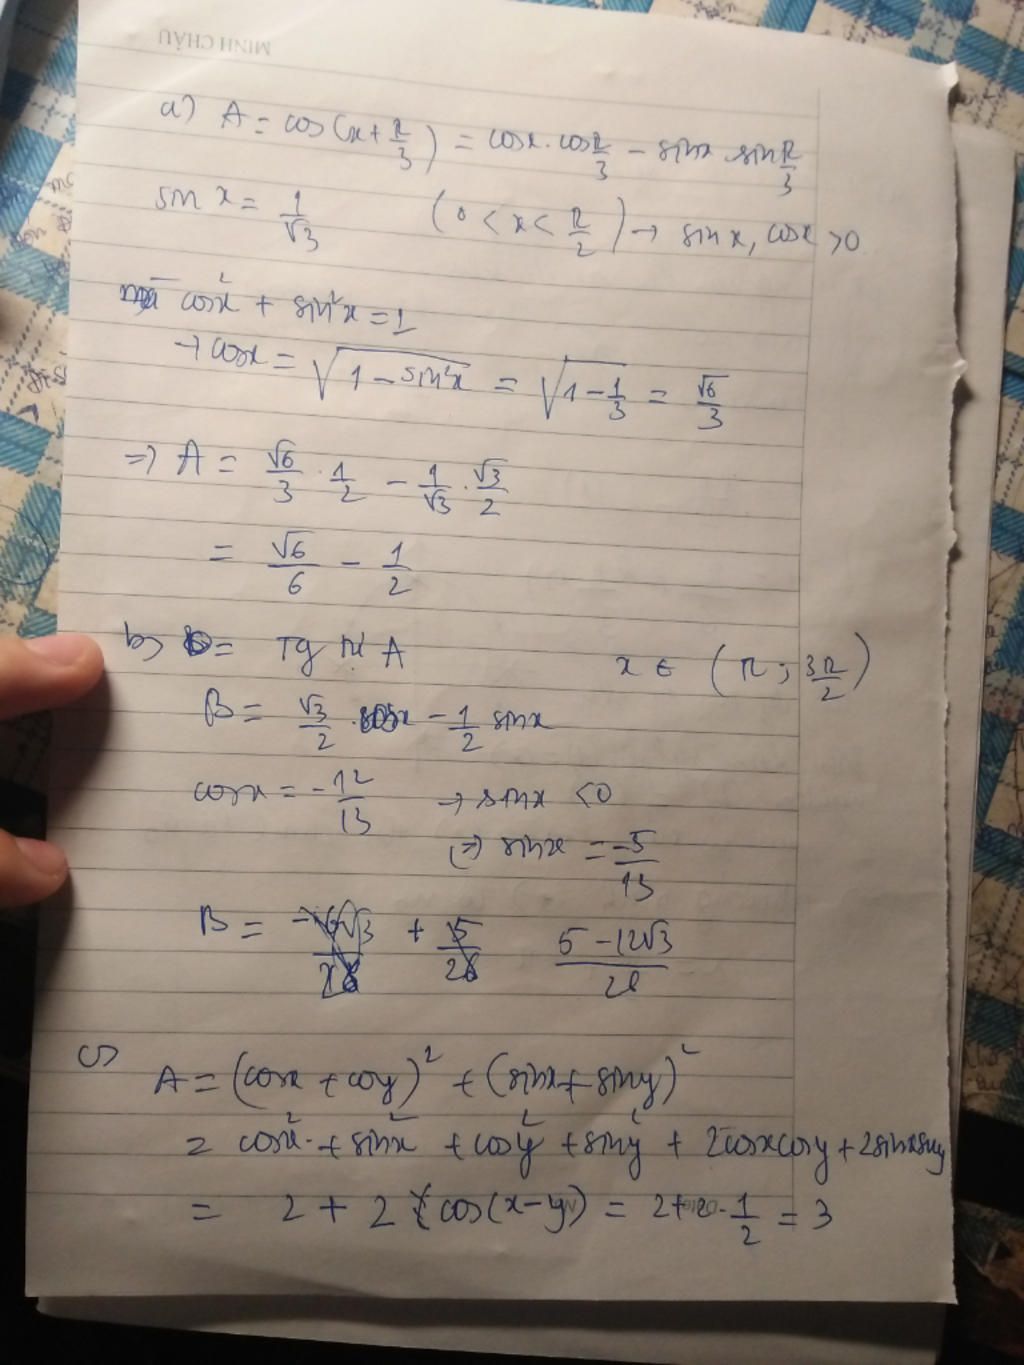 MINH CHÂU
a) A = cos(x + π/3) = cosx . cos π/3 − sinx sin π/3
sin x = 1/√3 (0 < x < π/2) → sinx, cosx > 0
mà cos²x + sin²x = 1
→ cosx = √(1 − sin²x) = √(1 − 1/3) = √6/3
=> A = √6/3 . 1/2 − 1/√3 . √3/2
= √6/6 − 1/2
b) = Tg tự A x ∈ (π ; 3π/2)
B = √3/2 . cosx − 1/2 sinx
cosx = −12/13 → sinx < 0
=> sinx = −5/13
B = (5 − 12√3)/26
c) A = (cosx + cosy)² + (sinx + siny)²
= cos²x + sin²x + cos²y + sin²y + 2cosxcosy + 2sinxsiny
= 2 + 2 cos(x − y) = 2 + 2 . 1/2 = 3